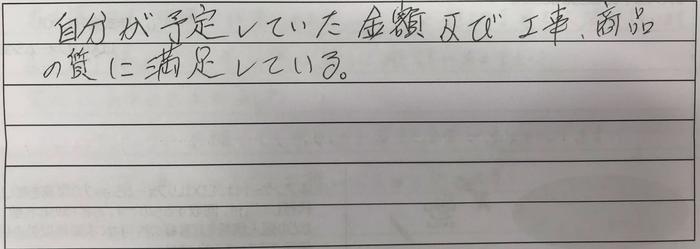 自分が予定していた金額及び工事、商品
の質に満足している。